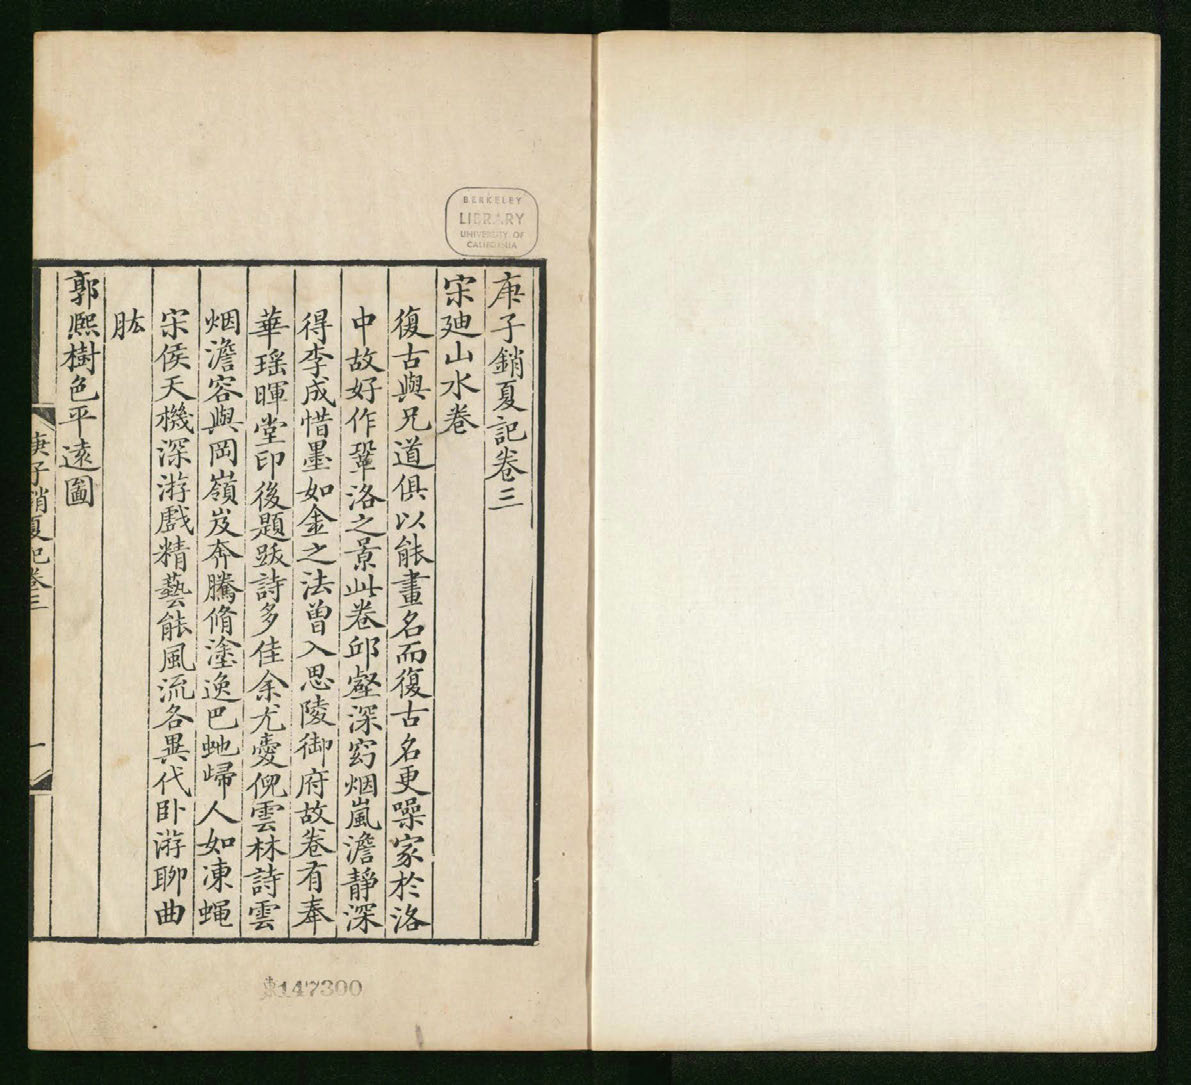 庚子銷夏記卷三
宋廸山水卷
復古與兄道俱以能畫名而復古名更噪家於洛
中故好作鞏洛之景此卷邱壑深窈烟嵐澹靜深
得李成惜墨如金之法曾入思陵御府故卷有奉
華瑶暉堂印後題跋詩多佳余尤愛倪雲林詩雲
烟澹容與岡嶺岌奔騰脩塗逸巴虵歸人如凍蝇
宋侯天機深游戲精藝能風流各異代卧游聊曲
肱
郭熈樹色平遠圖
庚子銷夏記卷三
一
BERKELEY
LIBRARY
UNIVERSITY OF
CALIFORNIA
東147300